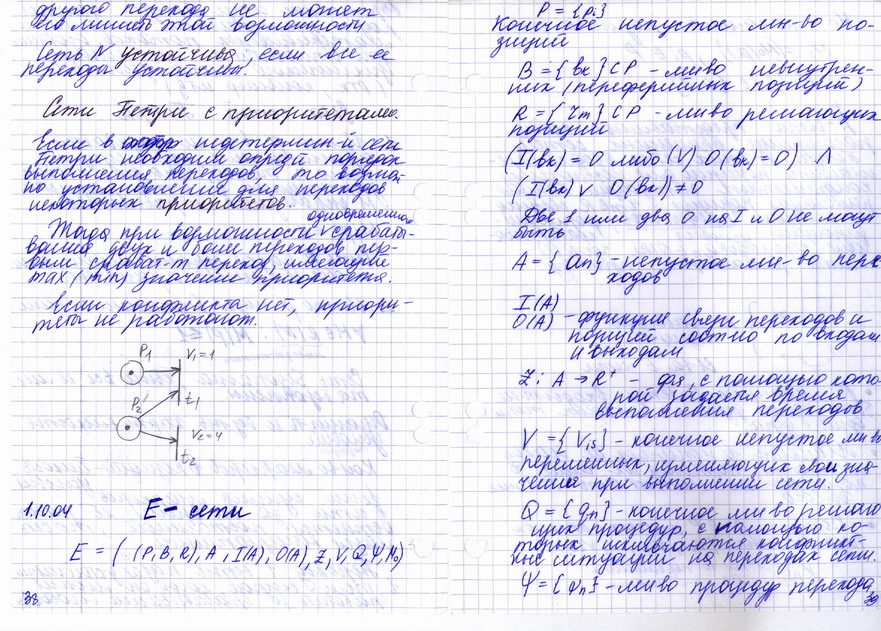 другого перехода не может
его лишить этой возможности
Сеть N устойчива, если все ее
переходы устойчивы.
Сети Петри с приоритетами.
Если в недетермин-й сети
Петри необходим опред-й порядок
выполнения переходов, то возмож-
но установление для переходов
некоторых приоритетов.
одновременного
Тогда при возможности v срабаты-
вания двух и более переходов пер-
вым сработ-т переход, имеющий
max (min) значение приоритета.
Если конфликта нет, приори-
теты не работают.
P1 V1=1
t1
P2 V2=4
t2
1.10.04 E - сети
E = ( (P, B, R), A, I(A), O(A), Z, V, Q, Ψ, M0)
38
P = {pi}
Конечное непустое мн-во по-
зиций
B = {bk} ⊂ P - мн-во невнутрен-
них (периферийных позиций)
R = {rm} ⊂ P - мн-во решающих
позиций
(I(bk) = 0 либо (V) O(bk) = 0) Λ
(I(bk) v O(bk)) ≠ 0
Две 1 или два 0 на I и O не могут
быть
A = {an} - непустое мн-во пере
ходов
I(A)
O(A) - функция связи переходов и
позиций состно по входам
и выходам
Z: A → R+ - ф-я, с помощью кото-
рой задается время
выполнения переходов
V = {Vis} - конечное непустое мн-во
переменных, изменяющих свои зна-
чения при выполнении сети.
Q = {qn} - конечное мн-во решаю
щих процедур, с помощью ко-
торых исключаются конфликт-
ные ситуации на переходах сети.
Ψ = {ψn} - мн-во процедур перехода,
39